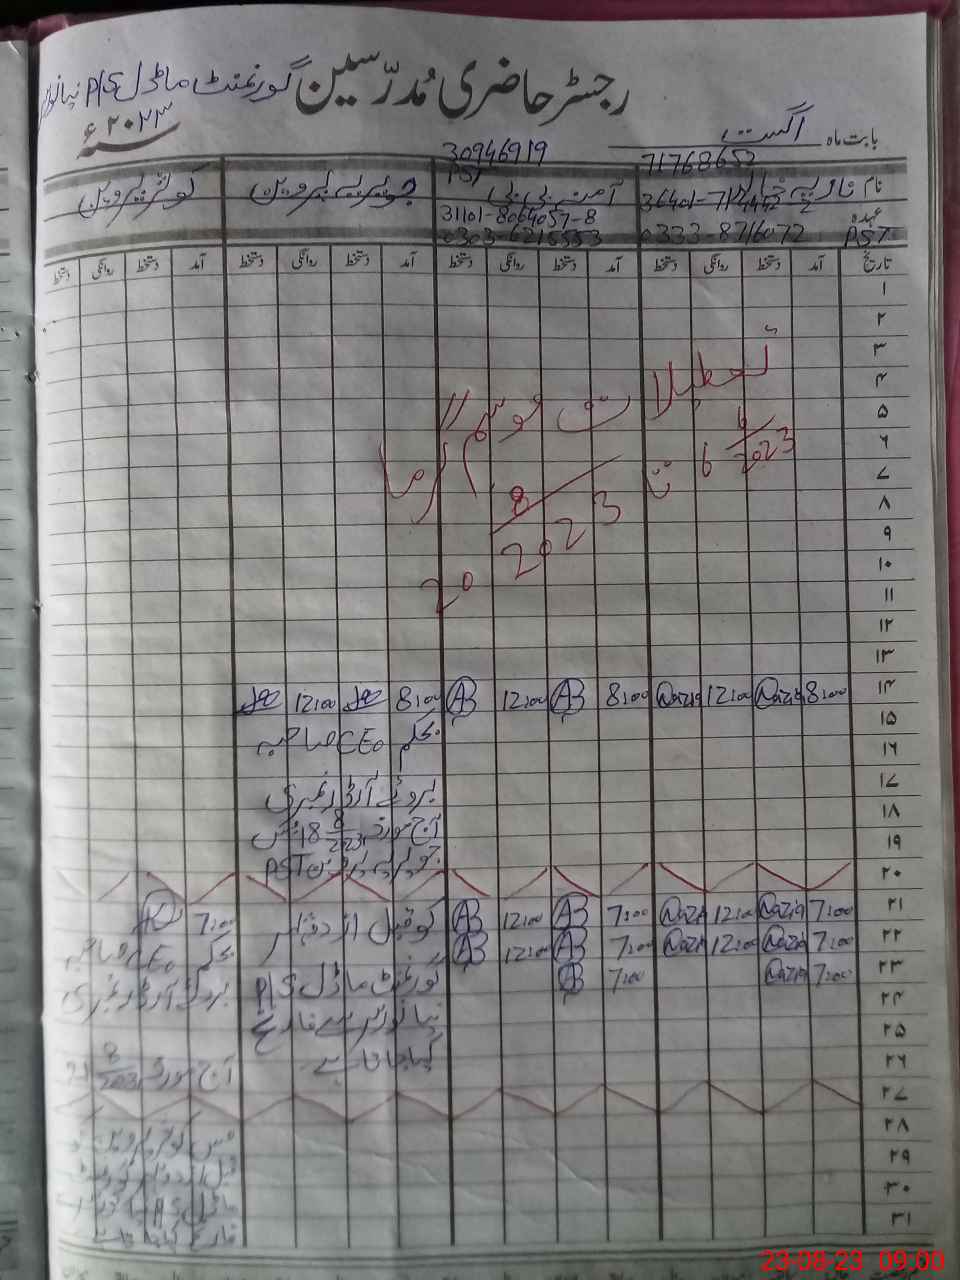 رجسٹر حاضری مُدرّسین گورنمنٹ ماڈل P/S
بابت ماہ اگست ۲۰۲۳ء
30946919 71768652
نام نازیہ PST آمنہ بی بی جویریہ پروین کوثر پروین
31101-8064057-8
عہدہ PST 0333-8716072 0303-6216553
تاریخ آمد دستخط روانگی دستخط آمد دستخط روانگی دستخط آمد دستخط روانگی دستخط آمد دستخط روانگی دستخط
۱
۲
۳
۴
۵
۶
۷
۸
۹
۱۰
۱۱
۱۲
۱۳
تعطیلات موسم گرما
6 6/2023 تا 20 8/2023
۱۴ 8:00 Nazia 12:00 Nazia 8:00 AB 12:00 AB 8:00 12:00
۱۵ بحکم CEO صاحبہ
۱۶
۱۷ بروئے آرڈر نمبری
۱۸ آج مورخہ 18 8/2023 مس
۱۹ جویریہ پروین PST
۲۰
۲۱ 7:00 Nazia 12:00 Nazia 7:00 AB 12:00 AB کو قبل از دفتر 7:00
۲۲ 7:00 Nazia 12:00 Nazia 7:00 AB 12:00 AB بحکم CEO صاحبہ
۲۳ 7:00 Nazia 7:00 AB گورنمنٹ ماڈل P/S بروئے آرڈر نمبری
۲۴ سے فارغ
۲۵ کیا جاتا ہے
۲۶ آج مورخہ 8/2023
۲۷
۲۸ مس کوثر پروین
۲۹
۳۰ ماڈل P/S
۳۱ فارغ کیا جاتا ہے
23-08-23 09:00